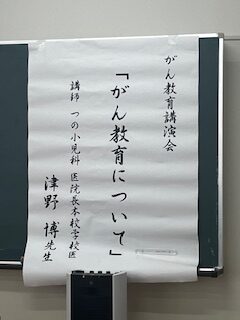 がん教育講演会
「がん教育について」
講師 つの小児科 医院長本校学校医
津野 博先生